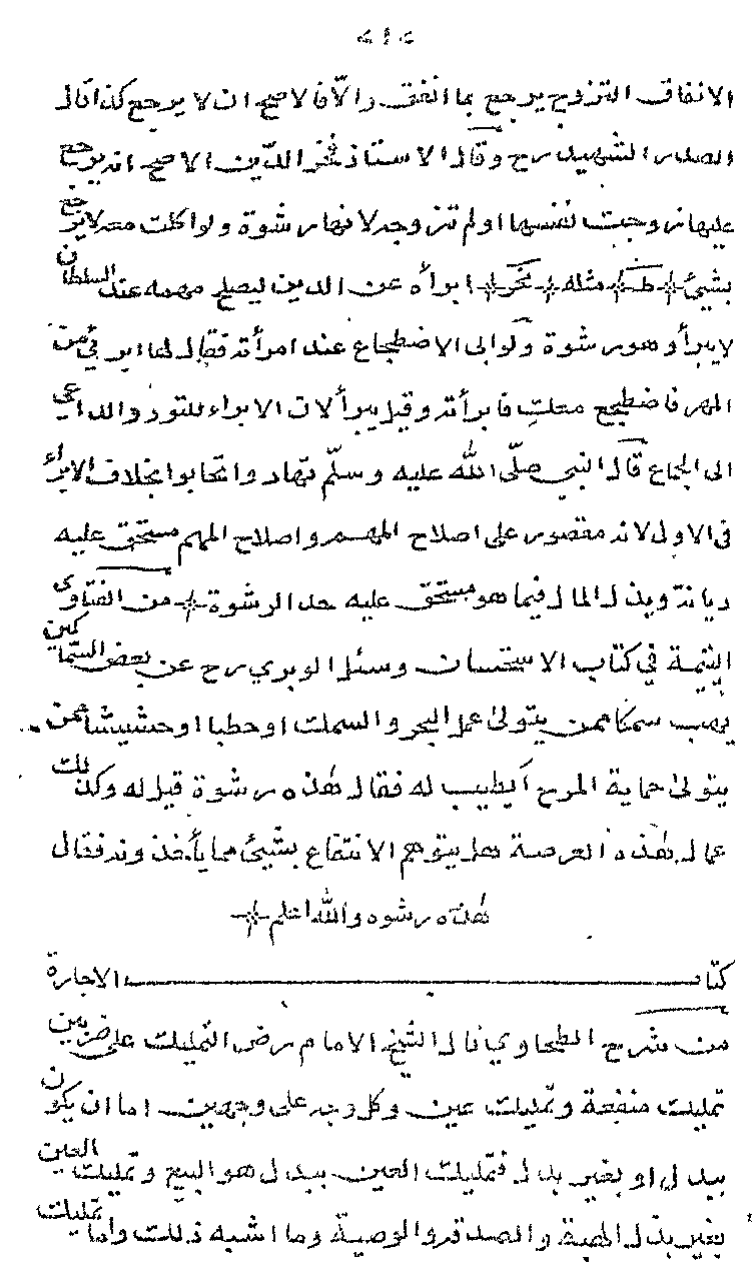 الانفاق التزوج يرجع بما انفق والّا فالاصح ان لا يرجع كذا قال
الصدر الشهيد رح وقال الاستاذ فخر الدّين الاصح انه يرجع
عليها زوجت نفسها او لم تزوجه لانها رشوة ولو اكلت معه لا يرجع
بشيئ + ط + مثله + نخر + ابرأه عن الدين ليصلح مهمه عند السلطان
لا يبرأ وهو رشوة ولو ابى الاضطجاع عند امرأته فقال لها ابرئي من
المهر فاضطجع معك فابرأته وقيل يبرأ لان الابراء للتودد والداعي
الى الجماع قال النبي صلّى الله عليه وسلّم تهادوا تحابوا بخلاف الابراء
في الاول لانه مقصور على اصلاح المهم واصلاح المهم مستحق عليه
ديانة وبذل المال فيما هو مستحق عليه حد الرشوة + من الفتاوى
اليتيمة في كتاب الاستحسان وسئل الوبري رح عن بعض السماكين
يهب سمكا ممن يتولى عمل البحر والسمك او حطبا او حشيشا ممن
يتولى حماية المرج أيطيب له فقال هذه رشوة قيل له وكذلك
عمال هذه العرصة هل يتوهم الانتفاع بشيئ مما يأخذونه فقال
هذه رشوه والله اعلم +
كتاب الاجارة
من شرح الطحاوي قال الشيخ الامام رض التمليك على ضربين
تمليك منفعة وتمليك عين وكل وجه على وجهين اما ان يكون
ببدل او بغير بدل فتمليك العين ببدل هو البيع وتمليك العين
بغير بدل الهبة والصدقة والوصية وما اشبه ذلك واما تمليك